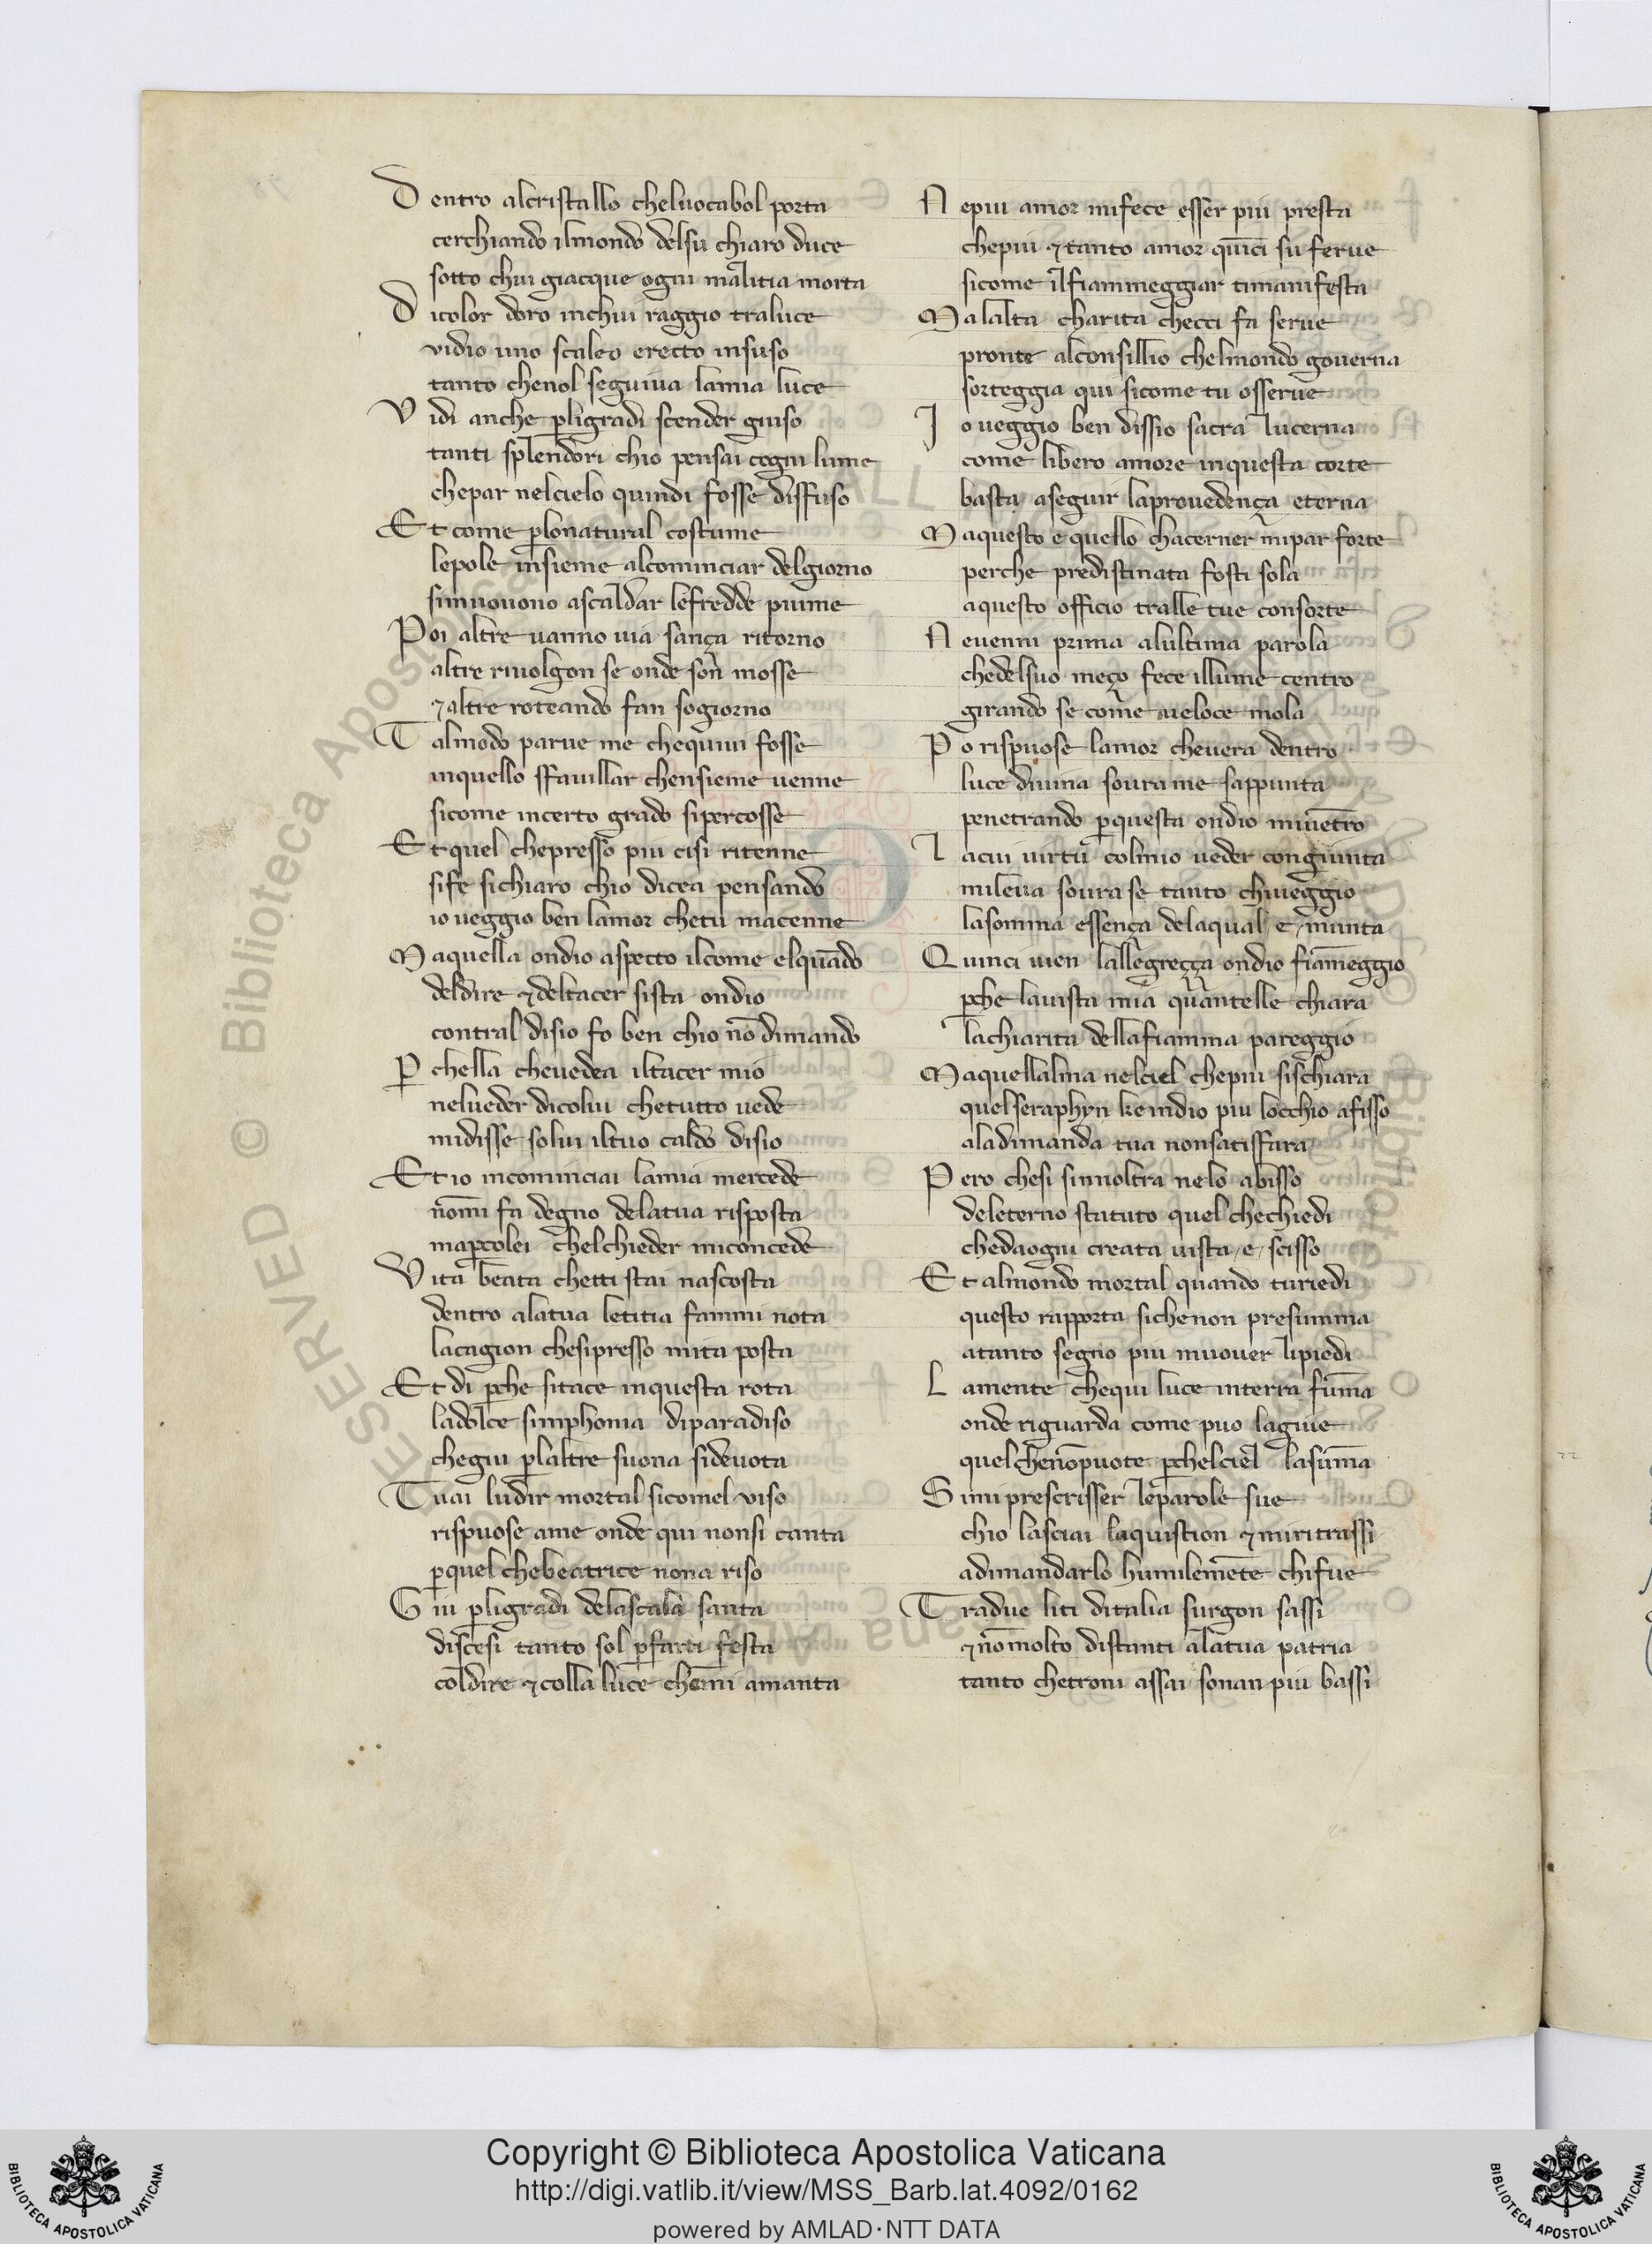 Dentro alcristallo cheluocabol porta
cerchiando ilmondo delsu chiaro duce
sotto chui giacque ogni malitia morta
Dicolor doro inchui raggio traluce
vidio uno scaleo erecto insuso
tanto chenol seguiua lamia luce
Vidi anche p̲ligradi scender giuso
tanti splendori chio pensai cogni lume
chepar nelcielo quindi fosse diffuso
Et come p̲lonatural costume
lepole insieme alcominciar delgiorno
simuouono ascaldar lefredde piume
Poi altre uanno uia sança ritorno
altre riuolgon se onde son mosse
⁊altre roteando fan sogiorno
Talmodo parue me chequiui fosse
inquello sfauillar chensieme uenne
sicome incerto grado sipercosse
Et quel chepresso piu cisi ritenne
sife sichiaro chio dicea pensando
io ueggio ben lamor chetu macenne
Maquella ondio aspecto ilcome elquādo
deldire ⁊deltacer sista ondio
contral disio fo ben chio nō dimando
P̲chella cheuedea iltacer mio
nelueder dicolui chetutto uede
midisse solui iltuo caldo disio
Et io incominciai lamia mercede
nōmi fa degno delatua risposta
map̲colei chelchieder miconcede
Vita beata chetti stai nascosta
dentro alatua letitia fammi nota
lacagion chesipresso mita posta
Et di p̲che sitace inquesta rota
ladolce simphonia diparadiso
chegiu p̲laltre suona sideuota
Tuai ludir mortal sicomel viso
rispuose ame onde qui nonsi canta
p̲quel chebeatrice nona riso
Giu p̲ligradi delascala santa
discesi tanto sol p̲farti festa
coldire ⁊colla luce chemi amanta
Nepiu amor mifece esser piu presta
chepiu ⁊tanto amor quīci su ferue
sicome ilfiammeggiar timanifesta
Malalta charita checci fa serue
pronte alconsillio chelmondo gouerna
sorteggia qui sicome tu osserue
Io ueggio ben dissio sacra lucerna
come libero amore inquesta corte
basta aseguir laprouedença eterna
Maquesto e quello chacerner mipar forte
perche predistinata fosti sola
aquesto officio tralle tue consorte
Neuenni prima alultima parola
chedelsuo meço fece illume centro
girando se come ueloce mola
Po rispuose lamor cheuera dentro
luce diuina soura me sappunta
penetrando p̲questa ondio miuētro
Lacui uirtu colmio ueder congiunta
mileua soura se tanto chiueggio
lasomma essença delaqual e munta
Quinci uien lallegreçça ondio fiāmeggio
p̲che lauista mia quantelle chiara
lachiarita dellafiamma pareggio
Maquellalma nelciel chepiu sischiara
quelseraphyn keindio piu locchio afisso
aladimanda tua nonsatisfara
Pero chesi sinoltra nelo abisso
deleterno statuto quel chechiedi
chedaogni creata uista e scisso
Et almondo mortal quando turiedi
questo rapporta sichenon presumma
atanto segno piu muouer lipiedi
Lamente chequi luce interra fūma
onde riguarda come puo lagiue
quel chenōpuote p̲chelciel lasūma
Simi prescrisser leparole sue
chio lasciai laquistion ⁊miritrassi
adimandarlo humilemēte chifue
Tradue liti ditalia surgon sassi
⁊nōmolto distanti alatua patria
tanto chetroni assai sonan piu bassi
RESERVED © Biblioteca Apostolica Vaticana
Copyright © Biblioteca Apostolica Vaticana
http://digi.vatlib.it/view/MSS_Barb.lat.4092/0162
powered by AMLAD·NTT DATA
BIBLIOTECA APOSTOLICA VATICANA
BIBLIOTECA APOSTOLICA VATICANA